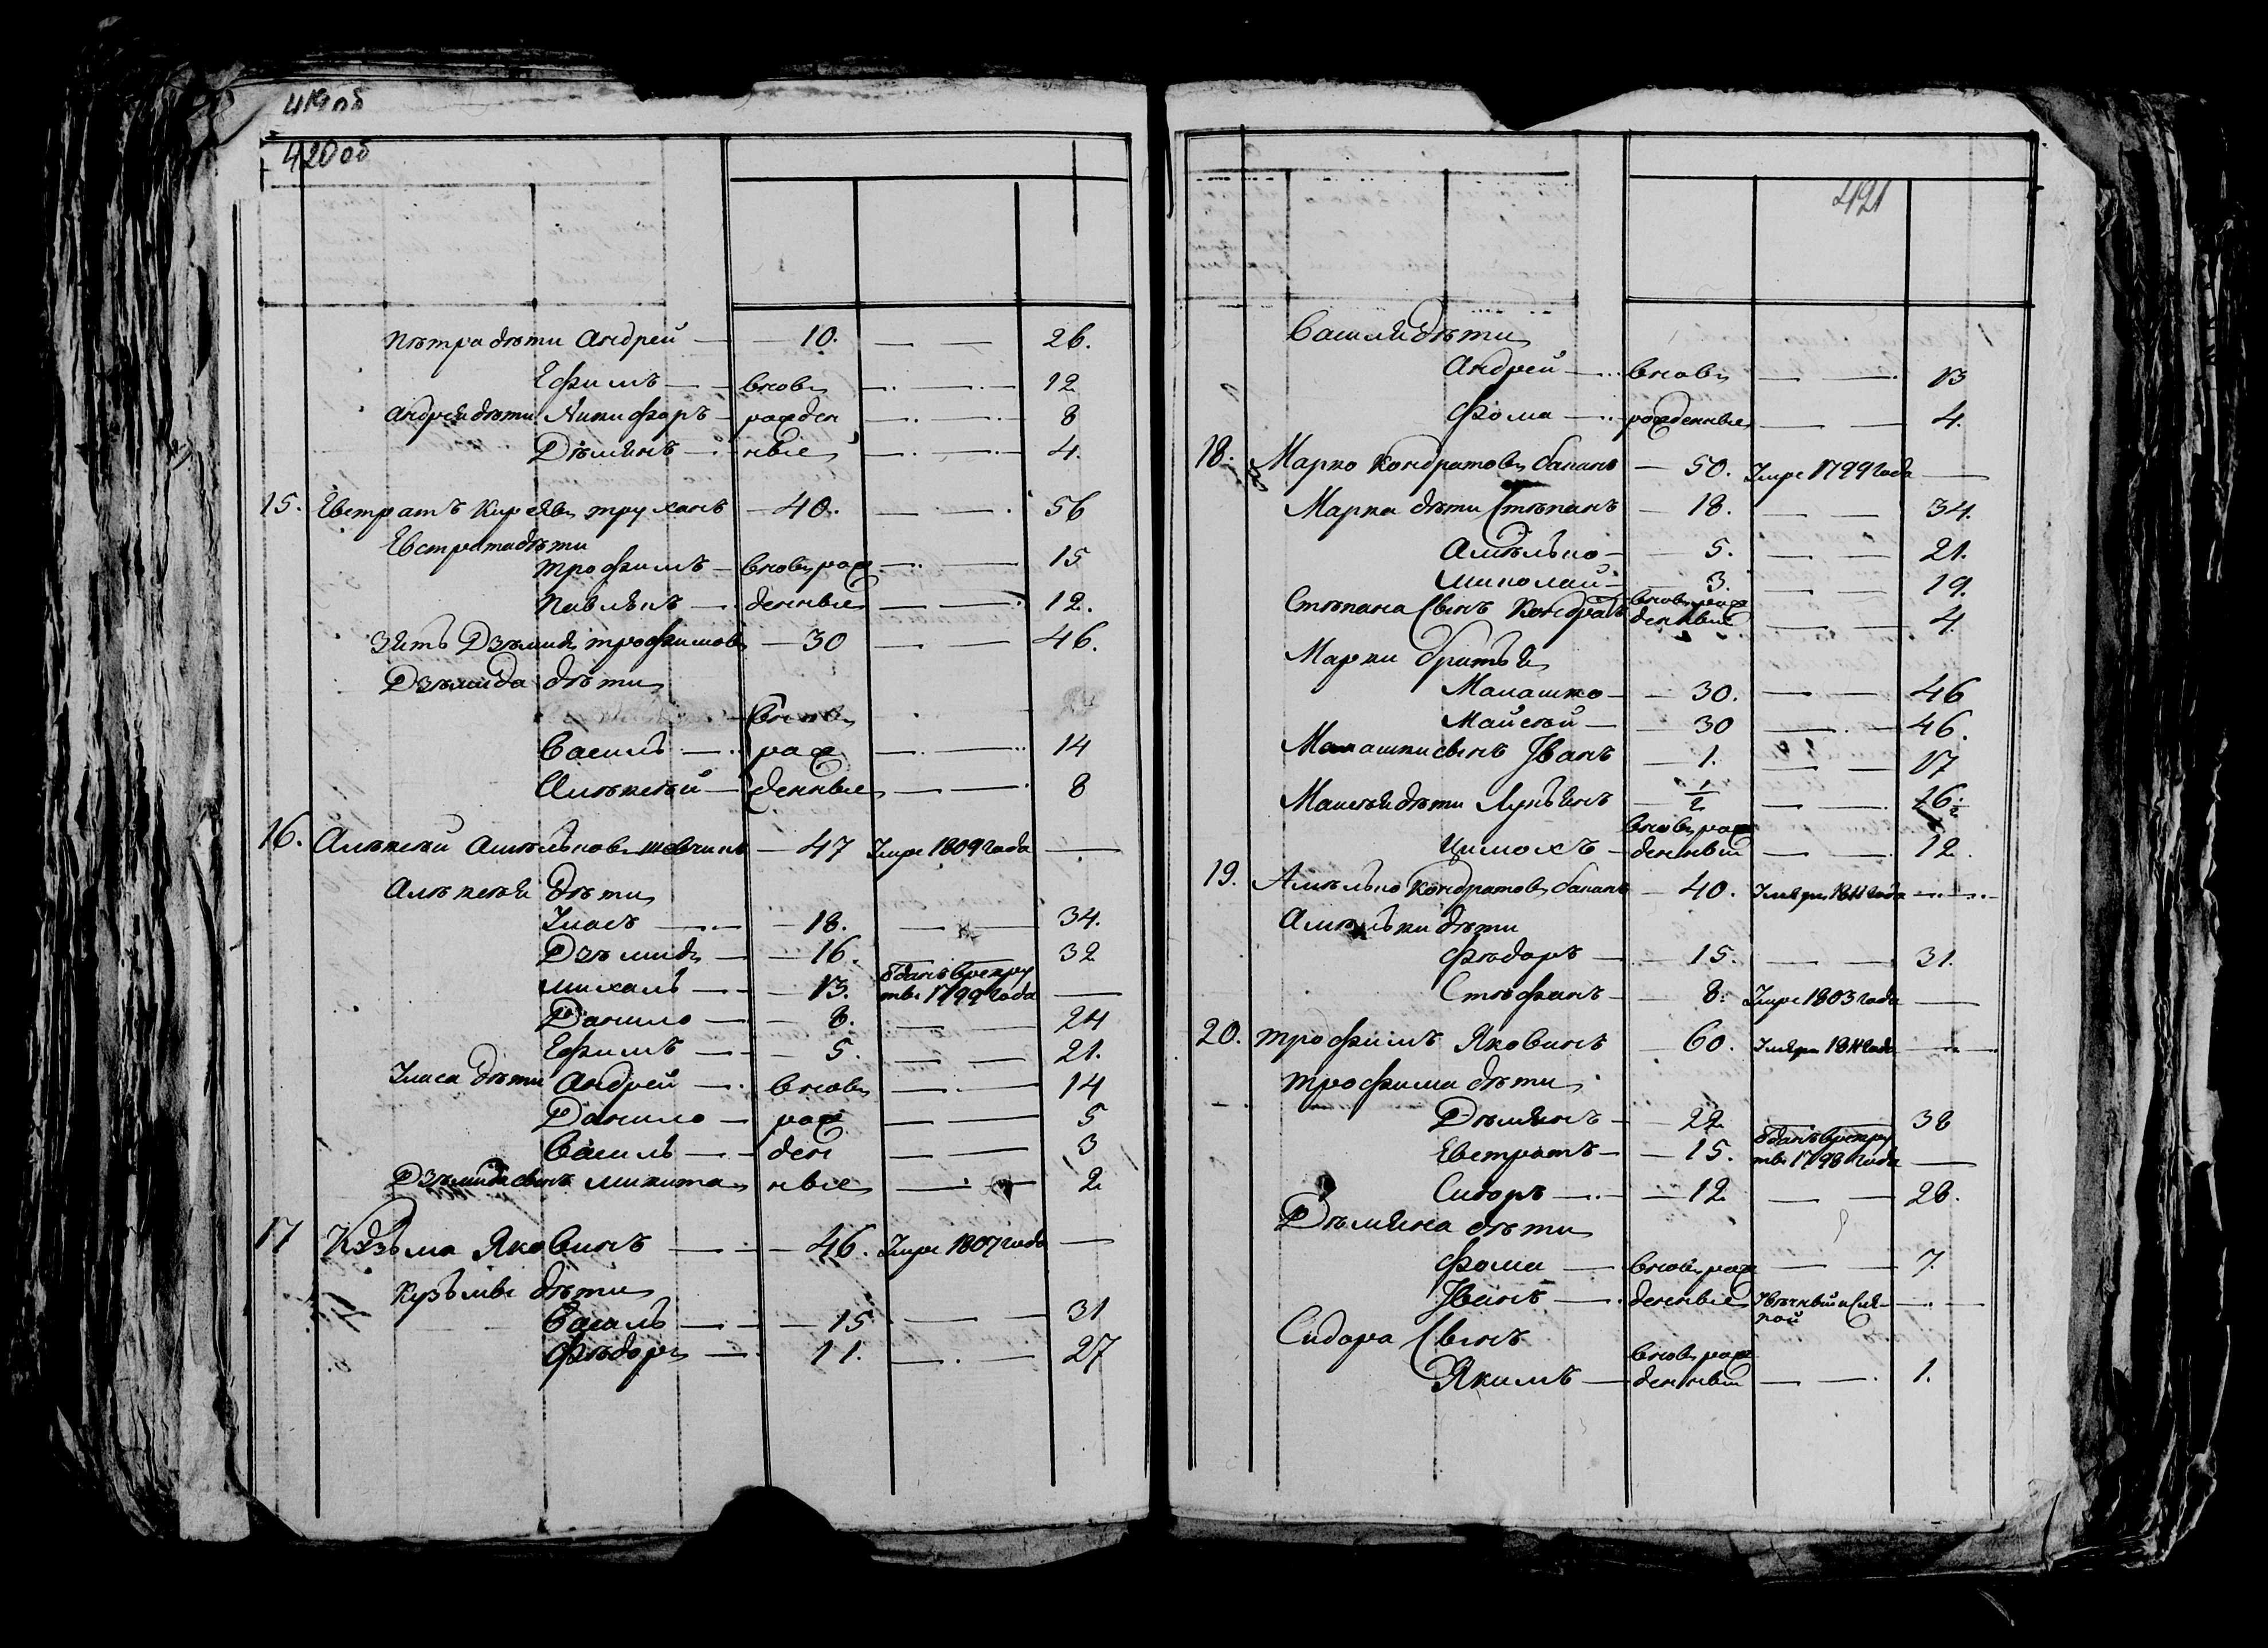 419 об
420 об
Петра дѣти Андрей — 10. — — 26.
Ефимъ — вновь — 12
Андрея дѣти Никифоръ — рожден — 8
Дѣмянъ — ные — 4.
15. Евстратъ Киреевъ Труханъ — 40. — — 56
Евстрата дѣти
Трофимъ — вновь рож — 15
Павлюкъ — денные — 12.
Зять Дземидъ Трофимовъ — 30 — — 46.
Дземида дѣти
вновь
Василь — рож — 14
Алексѣй — денные — 8
16. Алексѣй Амельяновъ — 47 Умре 1809 года —
Алексѣя дѣти
Уласъ — 18. — 34.
Дземидъ — 16. — 32
Михалъ — 13. Отданъ в рекру тъ 1799 года —
Данило — 8. — 24
Ефимъ — 5. — — 21.
Уласа дѣти Андрей — вновь — 14
Данило — рож — 5
Василь — ден — 3
Дземида сынъ Микита ные — 2
17 Кузьма Яковинъ — 46. Умре 1807 года —
Кузьмы дѣти
Василь — 15 — 31
Ѳедоръ — 11. — 27
421
Василя дѣти
Андрей — вновь — — 13
Фома — рожденные — — 4.
18. Марко Кондратовъ Баканъ — 50. Умре 1799 года —
Марка дѣти Степанъ — 18. — — 34.
Амелько — 5. — — 21.
Миколай — 3. — — 19.
Степана сынъ Кондратъ вновь рож денный — — 4
Марки братья
Малашко — 30. — — 46
Майсѣй — 30 — — 46.
Малашки сынъ Иванъ — 1. — — 17
Майсѣя дѣти Лукьянъ — 1/2 — — 16 1/2
Цимохъ — вновь рож денный — — 12
19. Амелько Кондратовъ Баканъ — 40. Умре 1811 года —
Амельки дѣти
Ѳедоръ — 15. — — 31.
Стефанъ — 8. Умре 1803 года —
20. Трофимъ Яковинъ — 60. Умре 1811 года —
Трофима дѣти
Дѣмянъ — 22 — 38
Евстратъ — 15. Отданъ в рекру тъ 1798 года —
Сидоръ — 12 — — 28.
Дѣмяна дѣти
Фома — вновь рож — — 7.
Иванъ — денные —
Сидора сынъ
Якимъ — вновь рож денный — — 1.